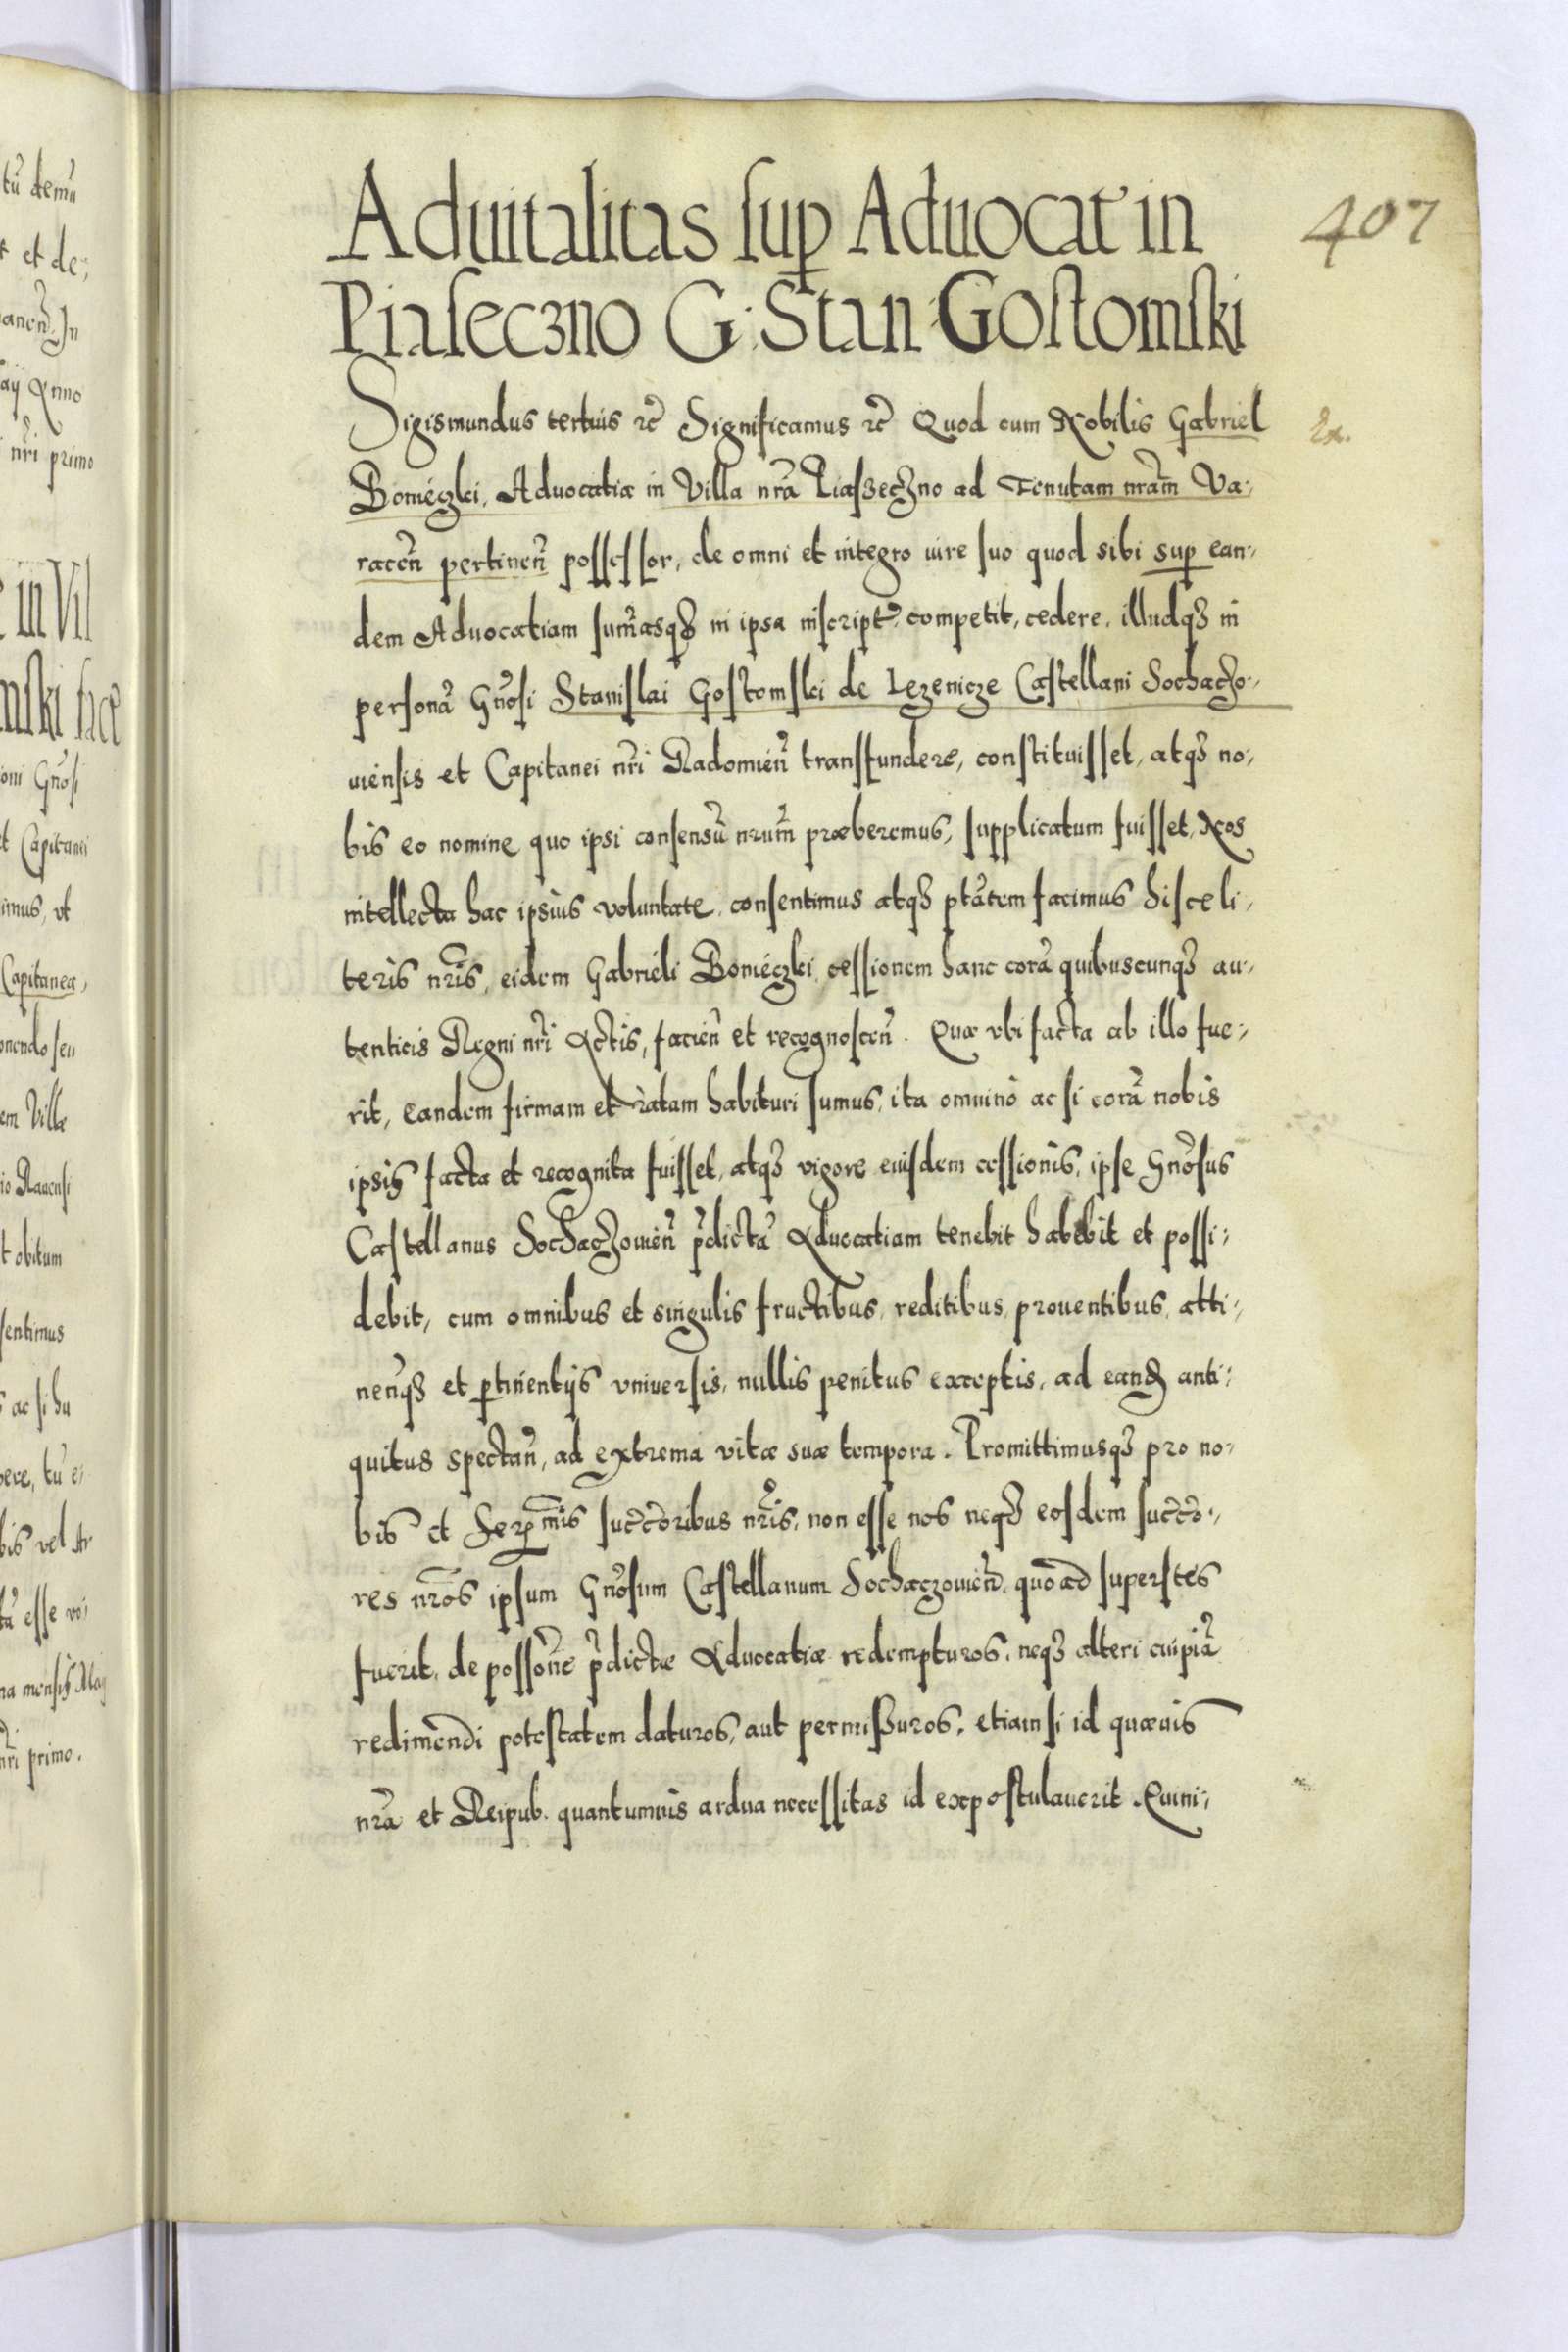 407
Aduitalitas sup Aduocat in
Piaseczno G: Stan: Gostomski
Sigismundus tertius rc̃ Significamus rc̃ Quod cum Nobilis Gabriel
Ex.
Boniéczki, Aduocatiæ in Villa nrã Piaszeczno ad Tenutam nram̃ Va-
racen̄ pertinen̄ possessor, de omni et integro iure suo quod sibi sup ean-
dem Aduocatiam sum̃asqȝ in ipsa inscript̃ competit, cedere, illudqȝ in
personã Gnõsi Stanislai Gostomski de Lezenicze Castellani Sochaczo-
uiensis et Capitanei nr̃i Radomien̄ transfundere, constituisset, atqȝ no-
bis eo nomine quo ipsi consensũ nrum̃ præberemus, supplicatum fuisset, Nos
intellecta hac ipsius voluntate, consentimus atqȝ ptãtem facimus hisce li-
teris nrĩs, eidem Gabrieli Boniéczki, cessionem hanc corã quibuscunqȝ au-
tenticis Regni nr̃i Actis, facien̄ et recognoscen̄. Quæ vbi facta ab illo fue-
rit, eandem firmam et ratam habituri sumus, ita omnino ac si corã nobis
ipsis facta et recognita fuisset, atqȝ vigore eiusdem cessionis, ipse Gnõsus
Castellanus Sochaczouien̄ p̃dictã Aduocatiam tenebit habebit et possi-
debit, cum omnibus et singulis fructibus, reditibus, prouentibus, atti-
nen̄qȝ et ptinentijs vniuersis, nullis penitus exceptis, ad eand anti-
quitus spectan̄, ad extrema vitæ suæ tempora. Promittimusqȝ pro no-
bis et Serenm̃is succ̃oribus nrĩs, non esse nos neqȝ eosdem succ̃o-
res nrõs ipsum Gnõsum Castellanum Sochaczouien̄, quoad superstes
fuerit, de possonẽ p̃dictæ Aduocatiæ redempturos, neqȝ alteri cuipiã
redimendi potestatem daturos, aut permissuros, etiamsi id quæuis
nrã et Reipub. quantumuis ardua necessitas id expostulauerit. Quini-